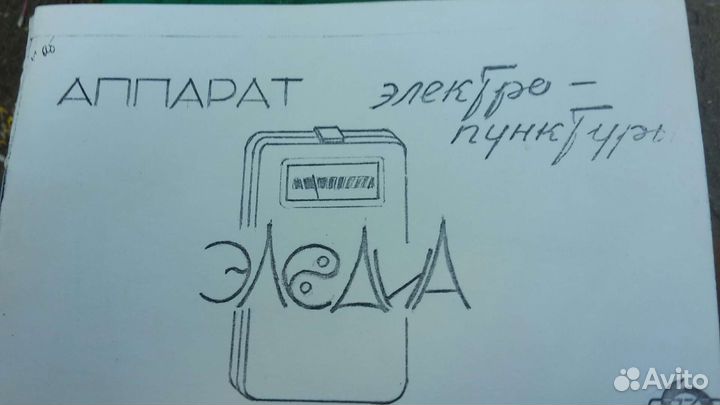 АППАРАТ электро-
пунктуры
ЭЛЕДИА
Avito